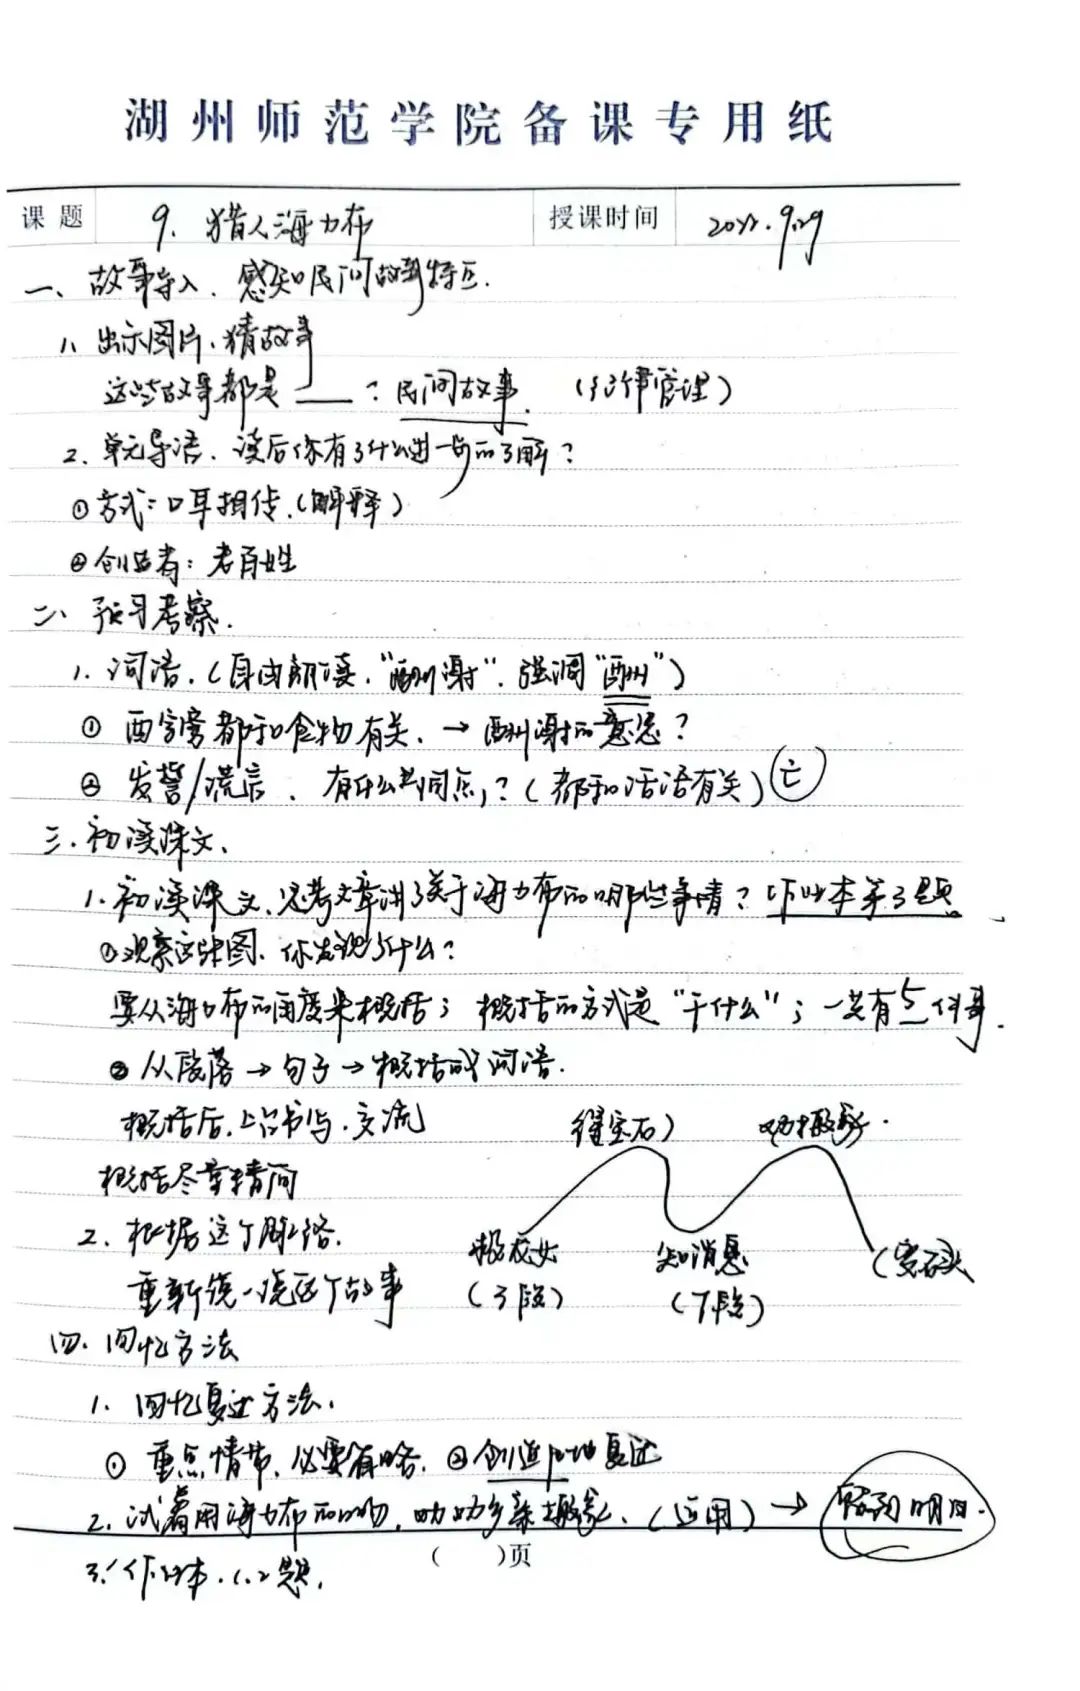 湖州师范学院备课专用纸
课题 9. 猎人海力布 授课时间 2022.9.29
一、故事导入、感知民间故事特点.
1、出示图片、猜故事
这些故事都是___? 民间故事. (纪律管理)
2、单元导语、读后你有了什么进一步的了解?
①方式:口耳相传.(解释)
②创造者:老百姓
二、预习考察.
1、词语.(自由朗读,"酬谢".强调"酬")
① 酉字旁都和食物有关、→酬谢的意思?
② 发誓/谎言、有什么共同点,?(都和话语有关) 亡
三、初读课文、
1、初读课文、思考文章讲了关于海力布的哪些事情? 作业本第3题。
①观察这张图、你发现了什么?
要从海力布的角度来概括; 概括的方式是"干什么"; 一共有5件事.
② 从段落→句子→概括成词语.
概括后、上台书写、交流 得宝石) 劝搬家.
概括尽量精简
2、根据这个脉络、 救龙女 知消息 (变石头
重新统一说这个故事 (3段) (7段)
四、回忆方法
1、回忆复述方法、
① 重点情节、必要省略. ②创造性地复述
2、试着用海力布的口吻,劝劝乡亲搬家、(运用)→
( )页
3、作业本.1、2题.